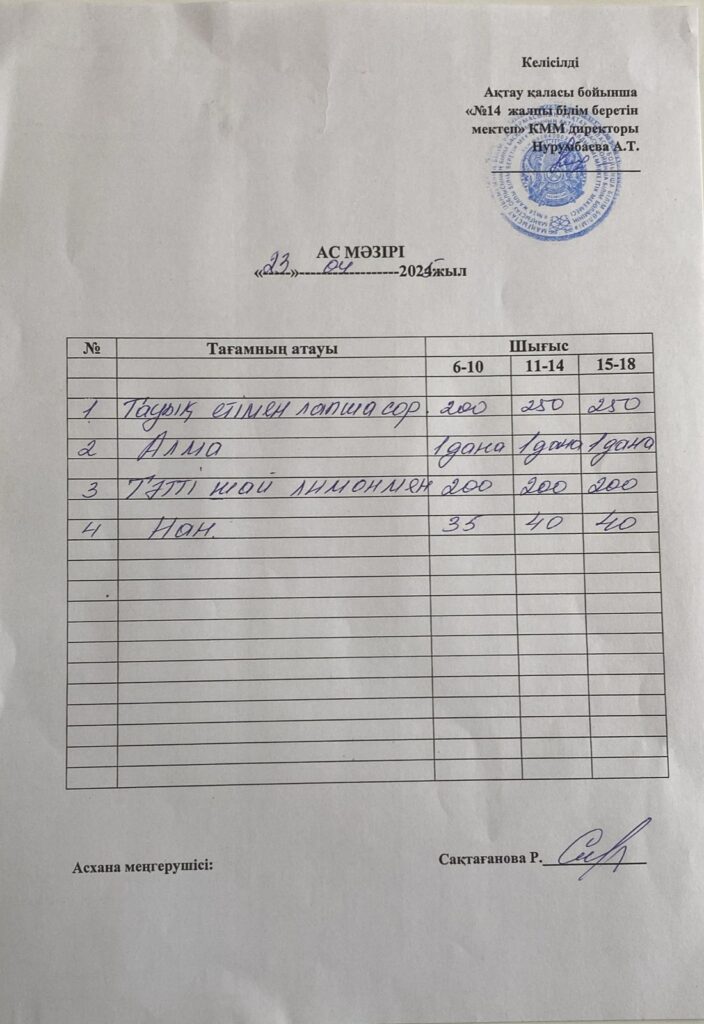 Келісілді
Ақтау қаласы бойынша
«№14 жалпы білім беретін
мектеп» КММ директоры
Нурумбаева А.Т.
АС МӘЗІРІ
«23»------04------------2025жыл
№ Тағамның атауы Шығыс
6-10 11-14 15-18
1 Тауық етімен лапша сор. 200 250 250
2 Алма 1 дана 1 дана 1 дана
3 Тәтті шай лимонмен 200 200 200
4 Нан. 35 40 40
Асхана меңгерушісі: Сақтағанова Р.